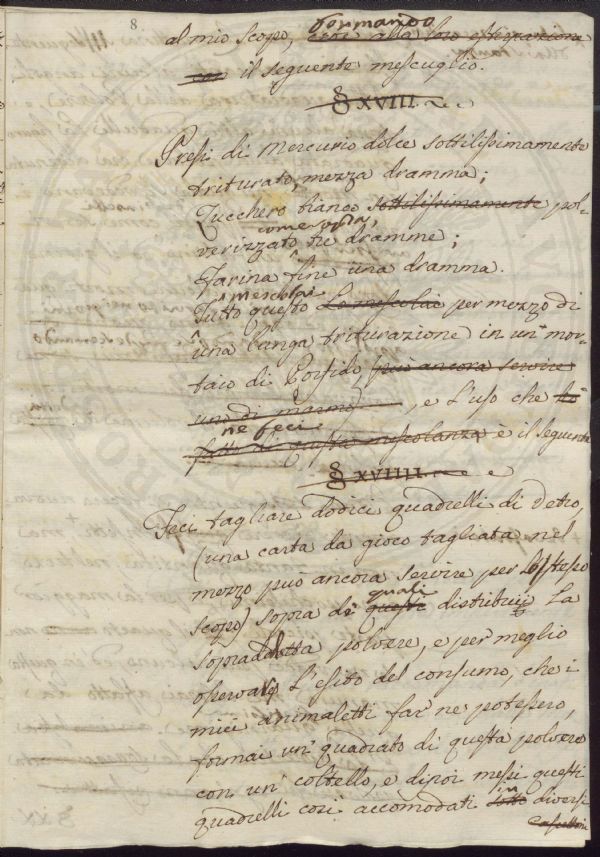 8
formando
al mio scopo, così alla loro estirpazione
con il seguente mescuglio.
§ XVIII.
Presi di Mercurio dolce sottilissimamente
triturato, mezza dramma;
Zucchero bianco sottilissimamente pol-
come sopra,
verizzato tre dramme;
Farina fine una dramma.
mescolai
Tutto questo Lo mescolai per mezzo di
una lunga triturazione in un' mor-
taio di Porfido, può ancora servire
uno di marmo, e l'uso che
ne feci
fatto di questa mescolanza è il seguente
§ XVIIII.
Feci tagliare dodici quadrelli di Vetro,
(una carta da gioco tagliata nel
mezzo può ancora servire per lo stesso
quali
scopo) sopra de questi distribuij La
sopradetta polvere, e per meglio
osservare L'esito del consumo, che i
miei animaletti far ne potessero,
formai un' quadrato di questa polvere
con un' coltello, e dipoi messi questi
in
quadrelli così accomodati sotto diversi
cassettini